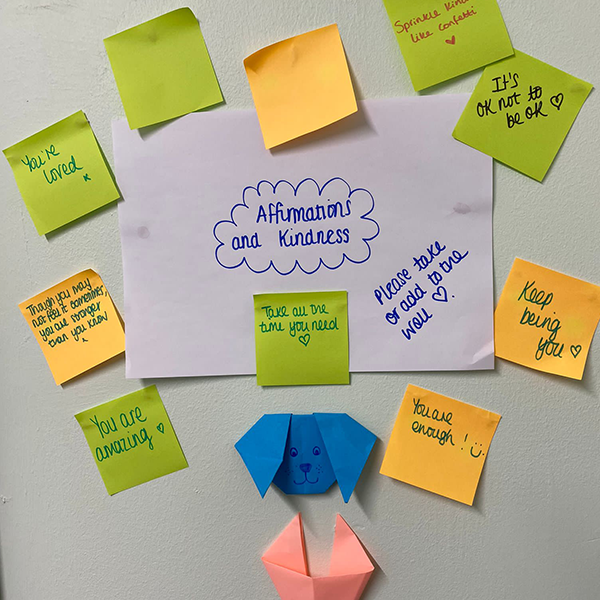 Sprinkle Kind
like confetti
It's
OK not to
be OK
You're
loved x
Affirmations
and Kindness
Please take
or add to the
wall
Though you may
not feel it sometimes,
you are stronger
than you know
x
Take all the
time you need
Keep
being
you
You are
amazing
You are
enough!